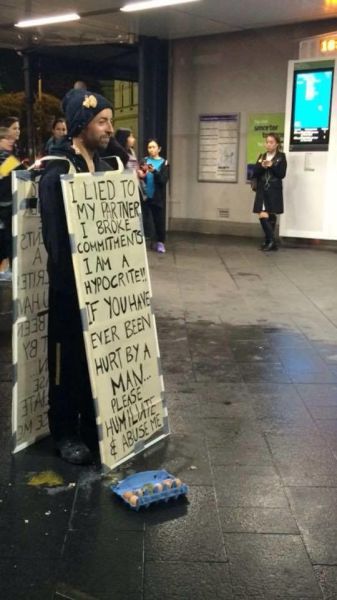 I LIED TO
MY PARTNER
I BROKE
COMMITMENTS
I AM A
HYPOCRITE!!
IF YOU HAVE
EVER BEEN
HURT BY A
MAN...
PLEASE
HUMILIATE
& ABUSE ME
smarter